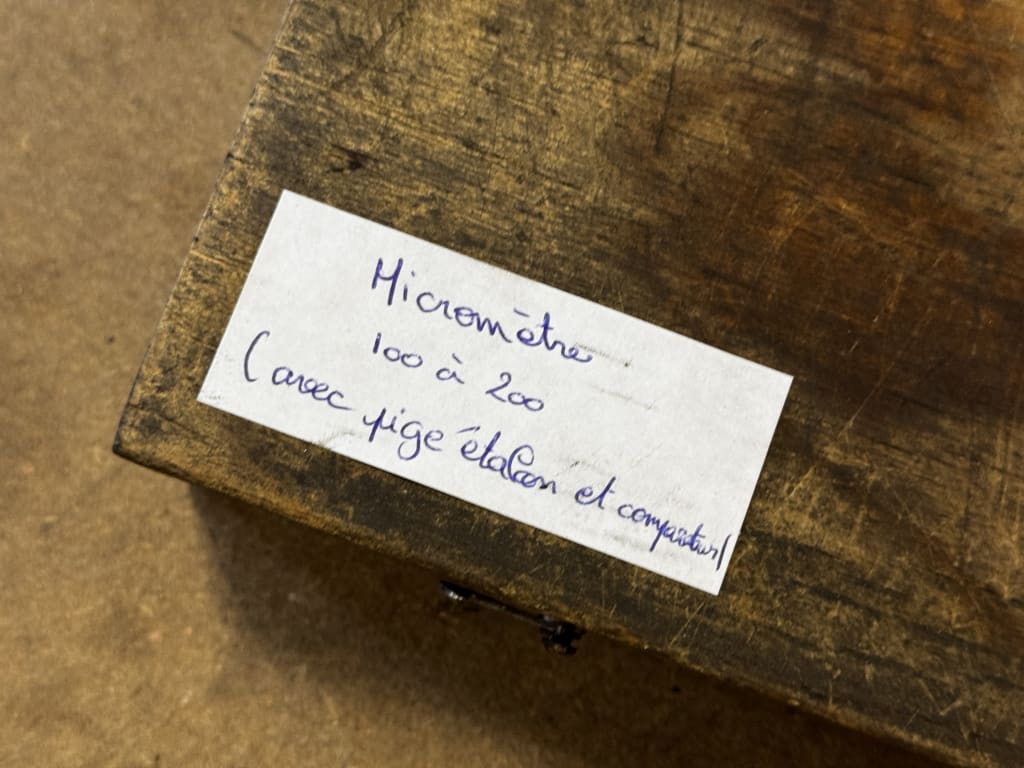 Micromètre
100 à 200
(avec pige étalon et comparateur)